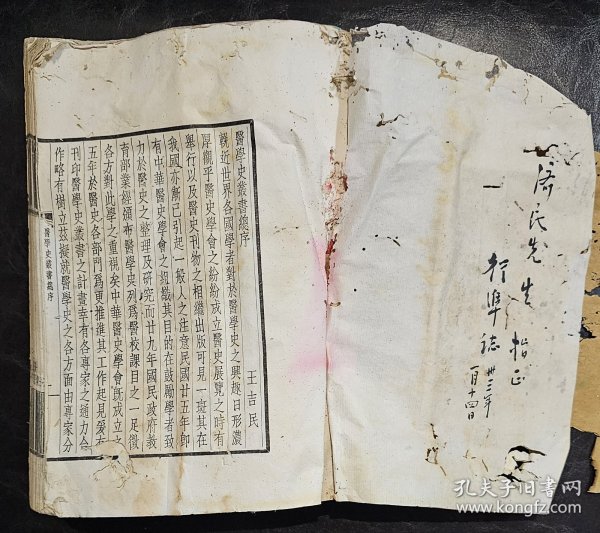 醫學史叢書總序
王吉民
輓近世界各國學者對於醫學史之興趣日形濃
厚觀乎醫史學會之紛紛成立醫史展覽之時有
舉行以及醫史刊物之相繼出版可見一斑其在
我國亦漸已引起一般人之注意民國廿五年即
有中華醫史學會之組織其目的在鼓勵學者致
力於醫史之整理及研究而廿九年國民政府教
育部業經頒布醫學史列為醫校課目之一足徵
各方對此學之重視矣中華醫史學會既成立之
五年於醫史各部門為更推進其工作起見爰有
刊印醫學史叢書之計畫幸有各專家之通力合
作略有樹立茲擬就醫學史之各方面由專家分
醫學史叢書總序
一
濟民先生指正
行準誌
卅三年
一月十四日
孔夫子旧书网
www.kongfz.com